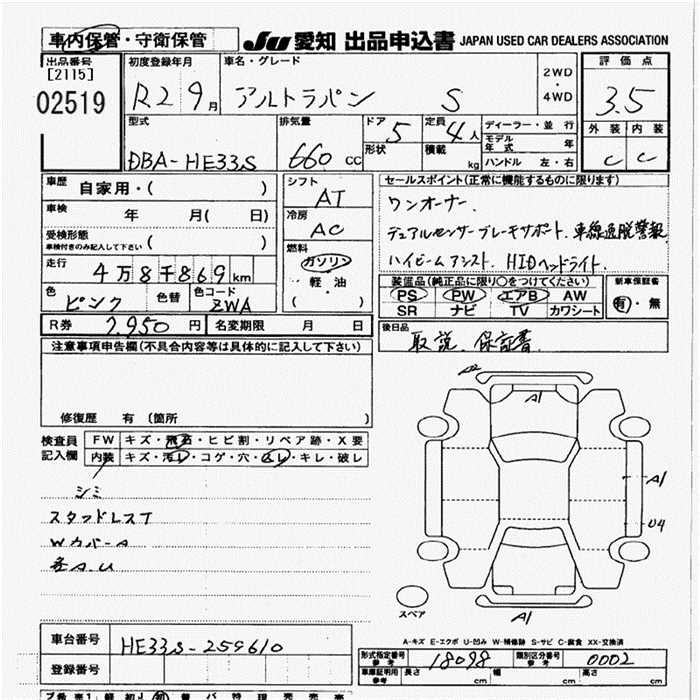 車内保管・守衛保管
JU 愛知 出品申込書 JAPAN USED CAR DEALERS ASSOCIATION
出品番号
[2115]
02519
初度登録年月
R2 9月
車名・グレード
アルトラパン S
2WD
・
4WD
評価点
3.5
外装 内装
C C
型式
DBA-HE33S
排気量
660 cc
ドア
5
形状
定員
4人
積載
kg
ディーラー・並行
モデル年式 年
ハンドル 左・右
車歴 自家用・( )
車検 年 月( 日)
受検形態
車検付きのみ記入して下さい ( )
走行
4万8千869km
色
ピンク
色替
色コード
ZWA
シフト
AT
冷房
AC
燃料
ガソリン
軽・油
( )
セールスポイント(正常に機能するものに限ります)
ワンオーナー.
デュアルセンサーブレーキサポート.車線逸脱警報
ハイビームアシスト. HIDヘッドライト.
装備品(純正品に限り○をつけてください)
PS PW エアB AW
SR ナビ TV カワシート
新車保証書
有・無
R券 7,950円
名変期限 月 日
後日品
取説. 保証書.
注意事項申告欄(不具合内容等は具体的に記入して下さい)
修復歴 有 (箇所 )
検査員
記入欄
FW キズ・飛石・ヒビ割・リペア跡・X要
内装 キズ・汚レ・コゲ・穴・スレ・キレ・破レ
シミ
スタッドレスT
Wカバー A
各A.U
A2
A1
A1
U4
A1
スペア
A-キズ E-エクボ U-凹み W-補修跡 S-サビ C-腐食 XX-交換済
車台番号 HE33S-259610
登録番号
型式指定番号
参考
18098
類別区分番号
参考
0002
車庫証明用
参考
長さ cm 幅 cm 高さ cm